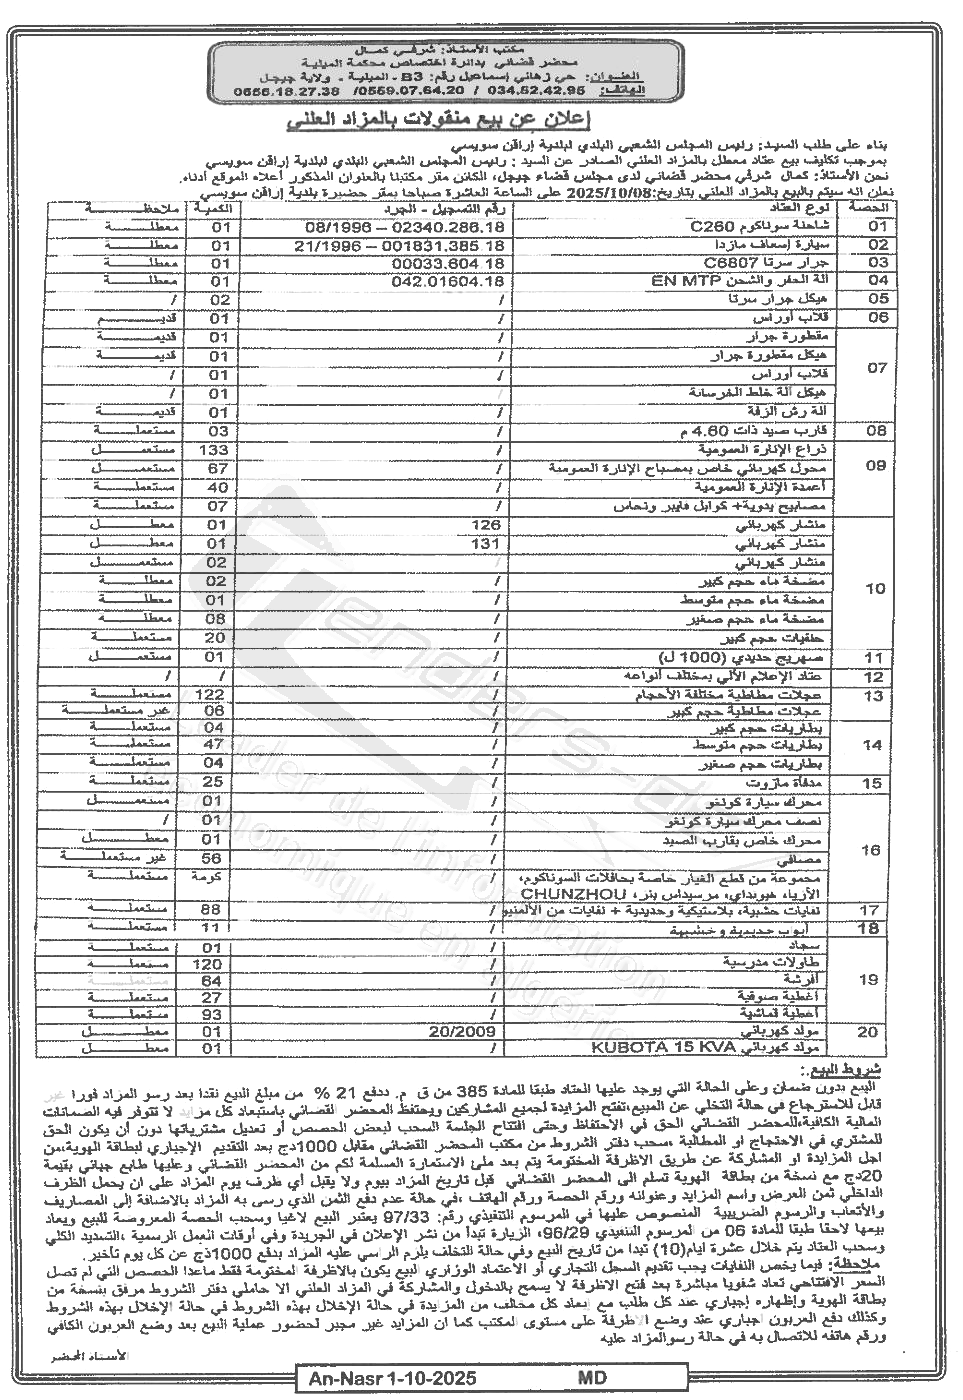 مكتب الأستاذ: شرفي كمال
محضر قضائي بدائرة اختصاص محكمة الميلية
العنوان: حي زهاني إسماعيل رقم: B3 - الميلية - ولاية جيجل
الهاتف: 034.52.42.95 / 0559.07.64.20/ 0656.18.27.38
إعلان عن بيع منقولات بالمزاد العلني
بناء على طلب السيد: رئيس المجلس الشعبي البلدي لبلدية إراقن سويسي
بموجب تكليف بيع عتاد معطل بالمزاد العلني الصادر عن السيد : رئيس المجلس الشعبي البلدي لبلدية إراقن سويسي
نحن الأستاذ: كمال شرفي محضر قضائي لدى مجلس قضاء جيجل، الكائن مقر مكتبنا بالعنوان المذكور أعلاه الموقع أدناه.
نعلن انه سيتم بالبيع بالمزاد العلني بتاريخ:2025/10/08 على الساعة العاشرة صباحا بمقر حضيرة بلدية إراقن سويسي
الحصة نوع العتاد رقم التسجيل - الجرد الكمية ملاحظة
01 شاحنة سوناكوم C260 08/1996 – 02340.286.18 01 معطلة
02 سيارة إسعاف مازدا 21/1996 – 001831.385.18 01 معطلة
03 جرار سرتا C6807 00033.604.18 01 معطلة
04 آلة الحفر والشحن EN MTP 042.01604.18 01 معطلة
05 هيكل جرار سرتا / 02 /
06 قلاب أوراس / 01 قديم
07 مقطورة جرار / 01 قديمة
هيكل مقطورة جرار / 01 قديمة
قلاب أوراس / 01 /
هيكل آلة خلط الخرسانة / 01 /
آلة رش الزفة / 01 قديمة
08 قارب صيد ذات 4.60 م / 03 مستعملة
09 ذراع الإنارة العمومية / 133 مستعمل
محول كهربائي خاص بمصباح الإنارة العمومية / 67 مستعمل
أعمدة الإنارة العمومية / 40 مستعملة
مصابيح يدوية+ كوابل فايبر ونحاس / 07 مستعملة
10 منشار كهربائي 126 01 معطل
منشار كهربائي 131 01 معطل
منشار كهربائي / 02 مستعمل
مضخة ماء حجم كبير / 02 معطلة
مضخة ماء حجم متوسط / 01 معطلة
مضخة ماء حجم صغير / 08 معطلة
حلقيات حجم كبير / 20 مستعملة
11 صهريج حديدي (1000 ل) / 01 مستعمل
12 عتاد الإعلام الألي بمختلف أنواعه / / /
13 عجلات مطاطية مختلفة الأحجام / 122 مستعملة
عجلات مطاطية حجم كبير / 06 غير مستعملة
14 بطاريات حجم كبير / 04 مستعملة
بطاريات حجم متوسط / 47 مستعملة
بطاريات حجم صغير / 04 مستعملة
15 مدفأة مازوت / 25 مستعملة
16 محرك سيارة كونغو / 01 مستعمل
نصف محرك سيارة كونغو / 01 /
محرك خاص بقارب الصيد / 01 معطل
مصافي / 56 غير مستعملة
مجموعة من قطع الغيار خاصة بحافلات السوناكوم، / كومة مستعملة
الأزيا، هيونداي، مرسيداس بنز، CHUNZHOU
17 نفايات خشبية، بلاستيكية وحديدية + نفايات من الألمنيو / 88 مستعملة
18 أبوب حديدية وخشبية / 11 مستعملة
19 سجاد / 01 مستعملة
طاولات مدرسية / 120 مستعملة
أفرشة / 64 مستعملة
أغطية صوفية / 27 مستعملة
أغطية قماشية / 93 مستعملة
20 مولد كهربائي 20/2009 01 معطل
مولد كهربائي KUBOTA 15 KVA / 01 معطل
شروط البيع:.
البيع بدون ضمان وعلى الحالة التي يوجد عليها العتاد طبقا للمادة 385 من ق م. ددفع 21 % من مبلغ البيع نقدا بعد رسو المزاد فورا غير
قابل للاسترجاع في حالة التخلي عن المبيع،تفتح المزايدة لجميع المشاركين ويحتفظ المحضر القضائي باستبعاد كل مزايد لا تتوفر فيه الضمانات
المالية الكافية،للمحضر القضائي الحق في الاحتفاظ وحتى افتتاح الجلسة السحب لبعض الحصص أو تعديل مشترياتها دون أن يكون الحق
للمشتري في الاحتجاج او المطالبة ،سحب دفتر الشروط من مكتب المحضر القضائي مقابل 1000دج بعد التقديم الإجباري لبطاقة الهوية،من
اجل المزايدة او المشاركة عن طريق الاظرفة المختومة يتم بعد ملئ الاستمارة المسلمة لكم من المحضر القضائي وعليها طابع جبائي بقيمة
20دج مع نسخة من بطاقة الهوية تسلم الى المحضر القضائي قبل تاريخ المزاد بيوم ولا يقبل أي ظرف يوم المزاد على ان يحمل الظرف
الداخلي ثمن العرض واسم المزايد وعنوانه ورقم الحصة ورقم الهاتف ،في حالة عدم دفع الثمن الذي رسى به المزاد بالاضافة إلى المصاريف
والأتعاب والرسوم الضريبية المنصوص عليها في المرسوم التنفيذي رقم: 97/33 يعتبر البيع لاغيا وسحب الحصة المعروضة للبيع ويعاد
بيعها لاحقا طبقا للمادة 06 من المرسوم التنفيذي 96/29، الزيارة تبدأ من نشر الإعلان في الجريدة وفي أوقات العمل الرسمية ،التسديد الكلي
وسحب العتاد يتم خلال عشرة ايام(10) تبدا من تاريخ البيع وفي حالة التخلف يلزم الراسي عليه المزاد بدفع 1000دج عن كل يوم تأخير.
ملاحظة: فيما يخص النفايات يجب تقديم السجل التجاري أو الاعتماد الوزاري البيع يكون بالاظرفة المختومة فقط ماعدا الحصص التي لم تصل
السعر الافتتاحي تعاد شفويا مباشرة بعد فتح الاظرفة لا يسمح بالدخول والمشاركة في المزاد العلني الا حاملي دفتر الشروط مرفق بنسخة من
بطاقة الهوية وإظهاره إجباري عند كل طلب مع إبعاد كل مخالف من المزايدة في حالة الإخلال بهذه الشروط في حالة الإخلال بهذه الشروط
وكذلك دفع العربون اجباري عند وضع الاظرفة على مستوى المكتب كما ان المزايد غير مجبر لحضور عملية البيع بعد وضع العربون الكافي
ورقم هاتفه للاتصال به في حالة رسوالمزاد عليه
الأستاذ المحضر
An-Nasr 1-10-2025 MD